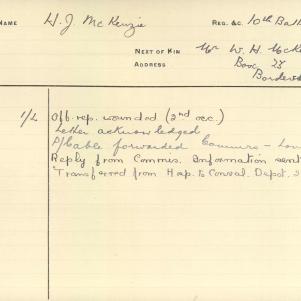 NAME H. J. McKenzie REG. &C. 10th Batt
NEXT OF KIN Mr W. H. McKe
ADDRESS Box 28
Borderto
1/L Off. rep. wounded (2nd occ.)
Letter acknowledged
P/Cable forwarded Commrs - Lon
Reply from Commrs. Information sent
Transferred from Hosp. to Conval. Depot. 2